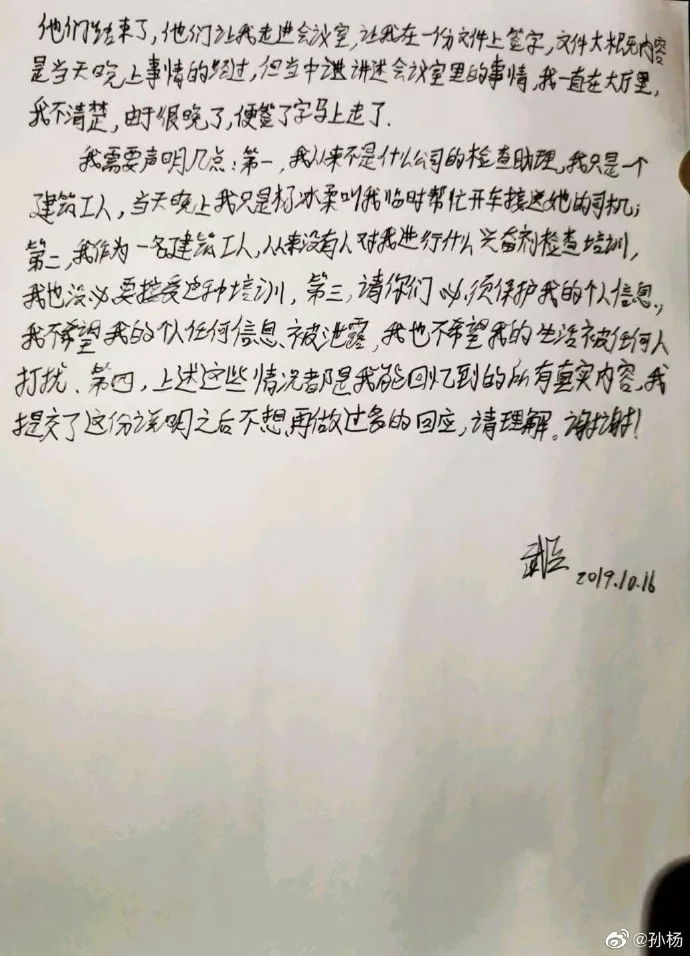 他们结束了，他们让我走进会议室，让我在一份文件上签字，文件大概内容
是当天晚上事情的经过，但当中讲述会议室里的事情，我一直在大厅里，
我不清楚，由于很晚了，便签了字马上走了.
我需要声明几点：第一，我从来不是什么公司的检查助理，我只是一个
建筑工人，当天晚上我只是杨冰柔叫我临时帮忙开车接送她的司机；
第二，我作为一名建筑工人，从来没有人对我进行什么兴奋剂检查培训，
我也没必要接受这种培训，第三，请你们必须保护我的个人信息，
我不希望我的个人任何信息被泄露，我也不希望我的生活被任何人
打扰、第四，上述这些情况都是我能回忆到的所有真实内容，我
提交了这份说明之后不想再做过多的回应，请理解。谢谢！
2019.10.16
@孙杨